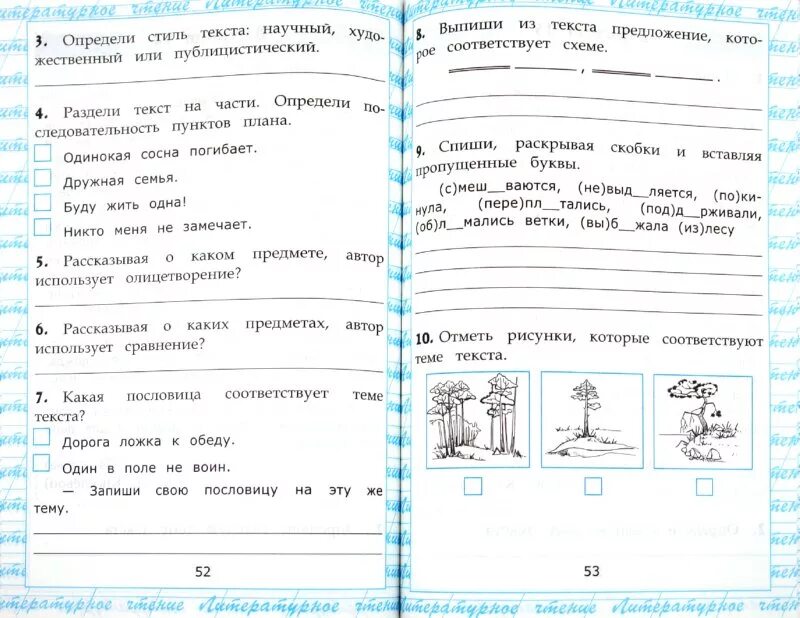 Литературное чтение Литературное чтение
3. Определи стиль текста: научный, худо-
жественный или публицистический.
4. Раздели текст на части. Определи по-
следовательность пунктов плана.
Одинокая сосна погибает.
Дружная семья.
Буду жить одна!
Никто меня не замечает.
5. Рассказывая о каком предмете, автор
использует олицетворение?
6. Рассказывая о каких предметах, автор
использует сравнение?
7. Какая пословица соответствует теме
текста?
Дорога ложка к обеду.
Один в поле не воин.
— Запиши свою пословицу на эту же
тему.
52
8. Выпиши из текста предложение, кото-
рое соответствует схеме.
9. Спиши, раскрывая скобки и вставляя
пропущенные буквы.
(с)меш__ваются, (не)выд__ляется, (по)ки-
нула, (пере)пл__тались, (под)д__рживали,
(об)л__мались ветки, (вы)б__жала (из)лесу
10. Отметь рисунки, которые соответствуют
теме текста.
53
Литературное чтение Литературное чтение